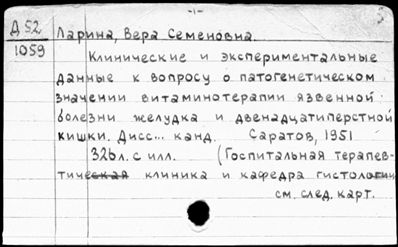 -1-
Д 52
1059
Ларина, Вера Семеновна.
Клинические и экспериментальные
данные к вопросу о патогенетическом
значении витаминотерапии язвенной
болезни желудка и двенадцатиперстной
кишки. Дисс... канд. Саратов, 1951
326 л. с илл. (Госпитальная терапев-
тическая клиника и кафедра гистологии
см. след. карт.